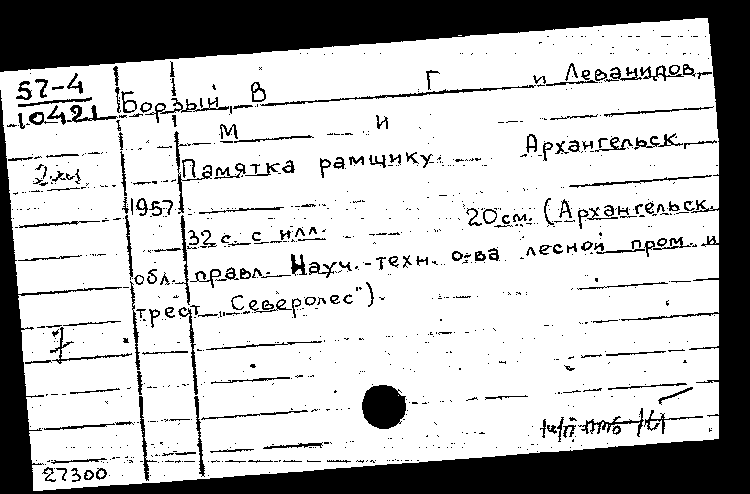 57-4
10421
Борзый, В Г и Леванидов,
М И
2 кн
Памятка рамщику. Архангельск,
1957.
32 с. с илл. 20 см. (Архангельск.
обл. правл. Науч.-техн. о-ва лесной пром. и
трест „Северолес").
7
27300